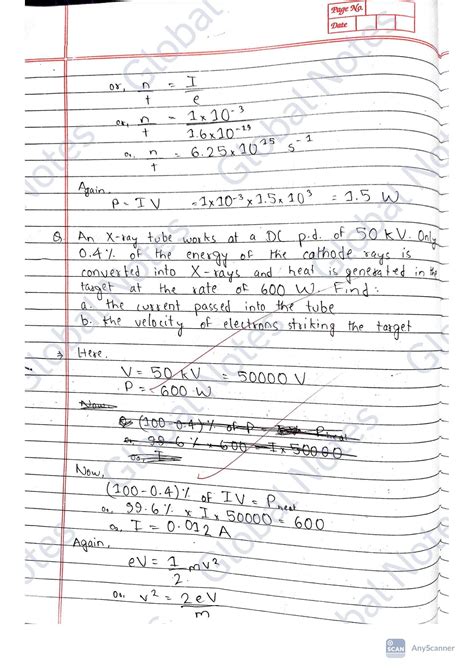 Page No.
Date
or, n/t = I/e
or, n/t = 1×10^-3 / 1.6×10^-19
or, n/t = 6.25×10^15 s^-1
Again,
P = IV = 1×10^-3 × 1.5×10^3 = 1.5 W
Q. An X-ray tube works at a DC p.d. of 50 kV. Only
0.4% of the energy of the cathode rays is
converted into X-rays and heat is generated in the
target at the rate of 600 W. Find:
a. the current passed into the tube
b. the velocity of electrons striking the target
→ Here,
V = 50 kV = 50000 V
P = 600 W
Now
(100-0.4)% of P = P heat
or 99.6% × 600 = I × 50000
or, I
Now,
(100-0.4)% of IV = P heat
or, 99.6% × I × 50000 = 600
or, I = 0.012 A
Again,
eV = 1/2 mv²
or, v² = 2eV/m
Global Notes
SCAN
AnyScanner